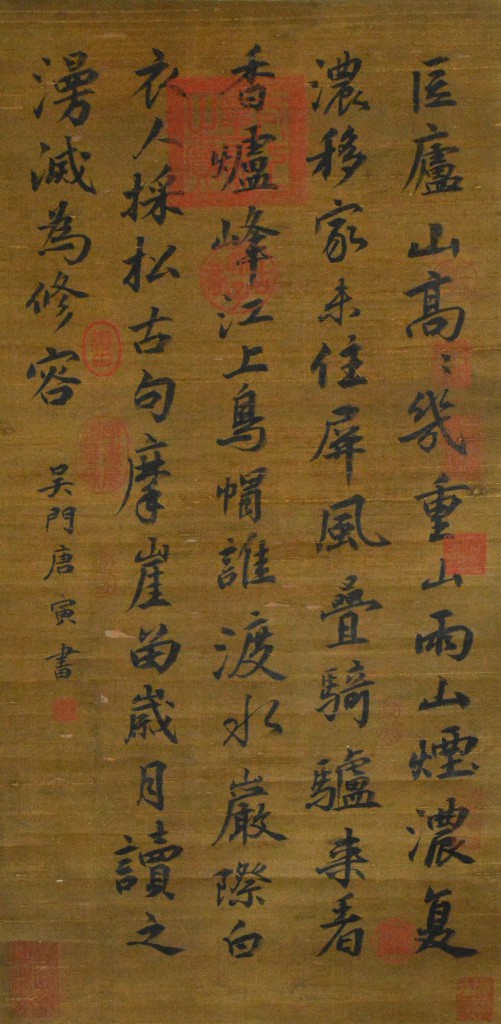 匡廬山高〻幾重山雨山煙濃复
濃移家未住屏風疊騎驢来看
香爐峰江上烏帽誰渡水巖際白
衣人採松古句摩崖留歲月讀之
漫滅為修容
吴門唐寅書